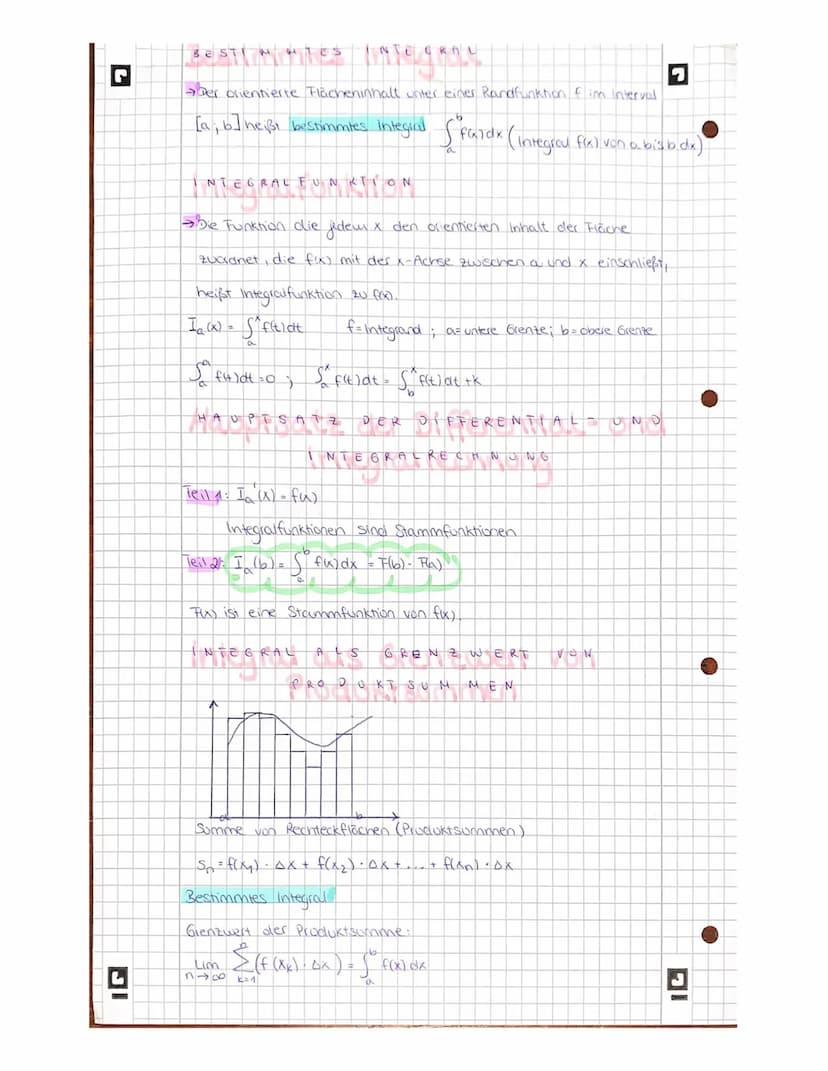 BESTIMMTES INTEGRAL
→ Der orientierte Flächeninhalt unter einer Randfunktion f im Interval
[a ; b] heißt bestimmtes Integral ∫ₐᵇ f(x)dx (Integral f(x) von a bis b dx)
INTEGRALFUNKTION
→ Die Funktion die jedem x den orientierten Inhalt der Fläche
zuordnet, die f(x) mit der x-Achse zwischen a und x einschließt,
heißt Integralfunktion zu f(x).
Iₐ(x) = ∫ₐˣ f(t)dt f=Integrand ; a=untere Grenze; b=obere Grenze
∫ₐᵃ f(t)dt =0 ; ∫ₐˣ f(t)dt = ∫_bˣ f(t)dt +k
HAUPTSATZ DER DIFFERENTIAL- UND
INTEGRALRECHNUNG
Teil 1: Iₐ'(x) = f(x)
Integralfunktionen sind Stammfunktionen
Teil 2: Iₐ(b) = ∫ₐᵇ f(x)dx = F(b) - F(a)
F(x) ist eine Stammfunktion von f(x).
INTEGRAL ALS GRENZWERT VON
PRODUKTSUMMEN
a b
Summe von Rechteckflächen (Produktsummen)
Sₙ = f(x₁) · Δx + f(x₂) · Δx + ... + f(xₙ) · Δx
Bestimmtes Integral
Grenzwert der Produktsumme:
Lim n→∞ ∑ₖ₌₁ⁿ (f(xₖ) · Δx) = ∫ₐᵇ f(x)dx